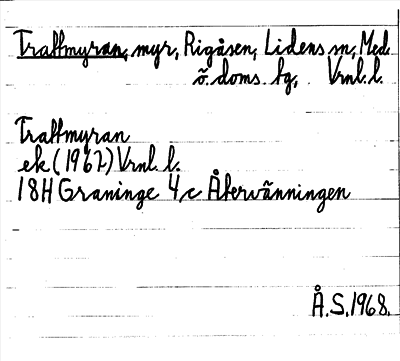 Traffmyran, myr, Rigåsen, Lidens sn, Med.
ö. doms. fg, Vrnl. l.
Traffmyran
ek (1962) Vrnl. l.
18H Graninge 4 c Återvänningen
Å.S. 1968.